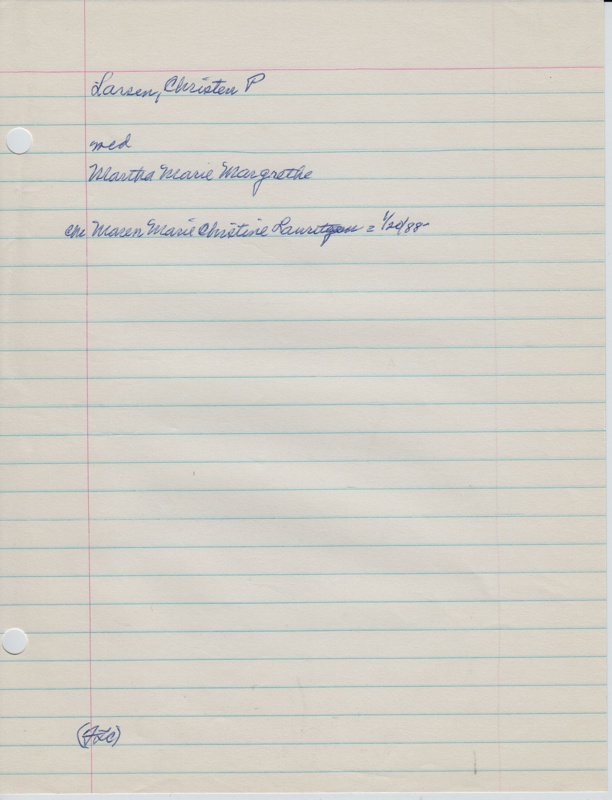 Larsen, Christen P
med
Martha Marie Margrethe
ch Maren Marie Christine = 1/20/88